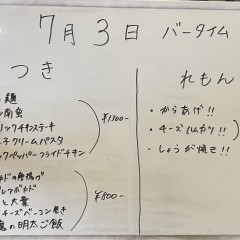 7月3日 バータイム
つき
麺
南蛮
リックチキンステーキ
クリームパスタ
クペッパーフライドチキン
¥1300-
の唐揚げ
と大葉
チーズベーコン巻き
の明太ご飯
¥800-
れもん
・からあげ!!
・チーズ
・しょうが焼き!!